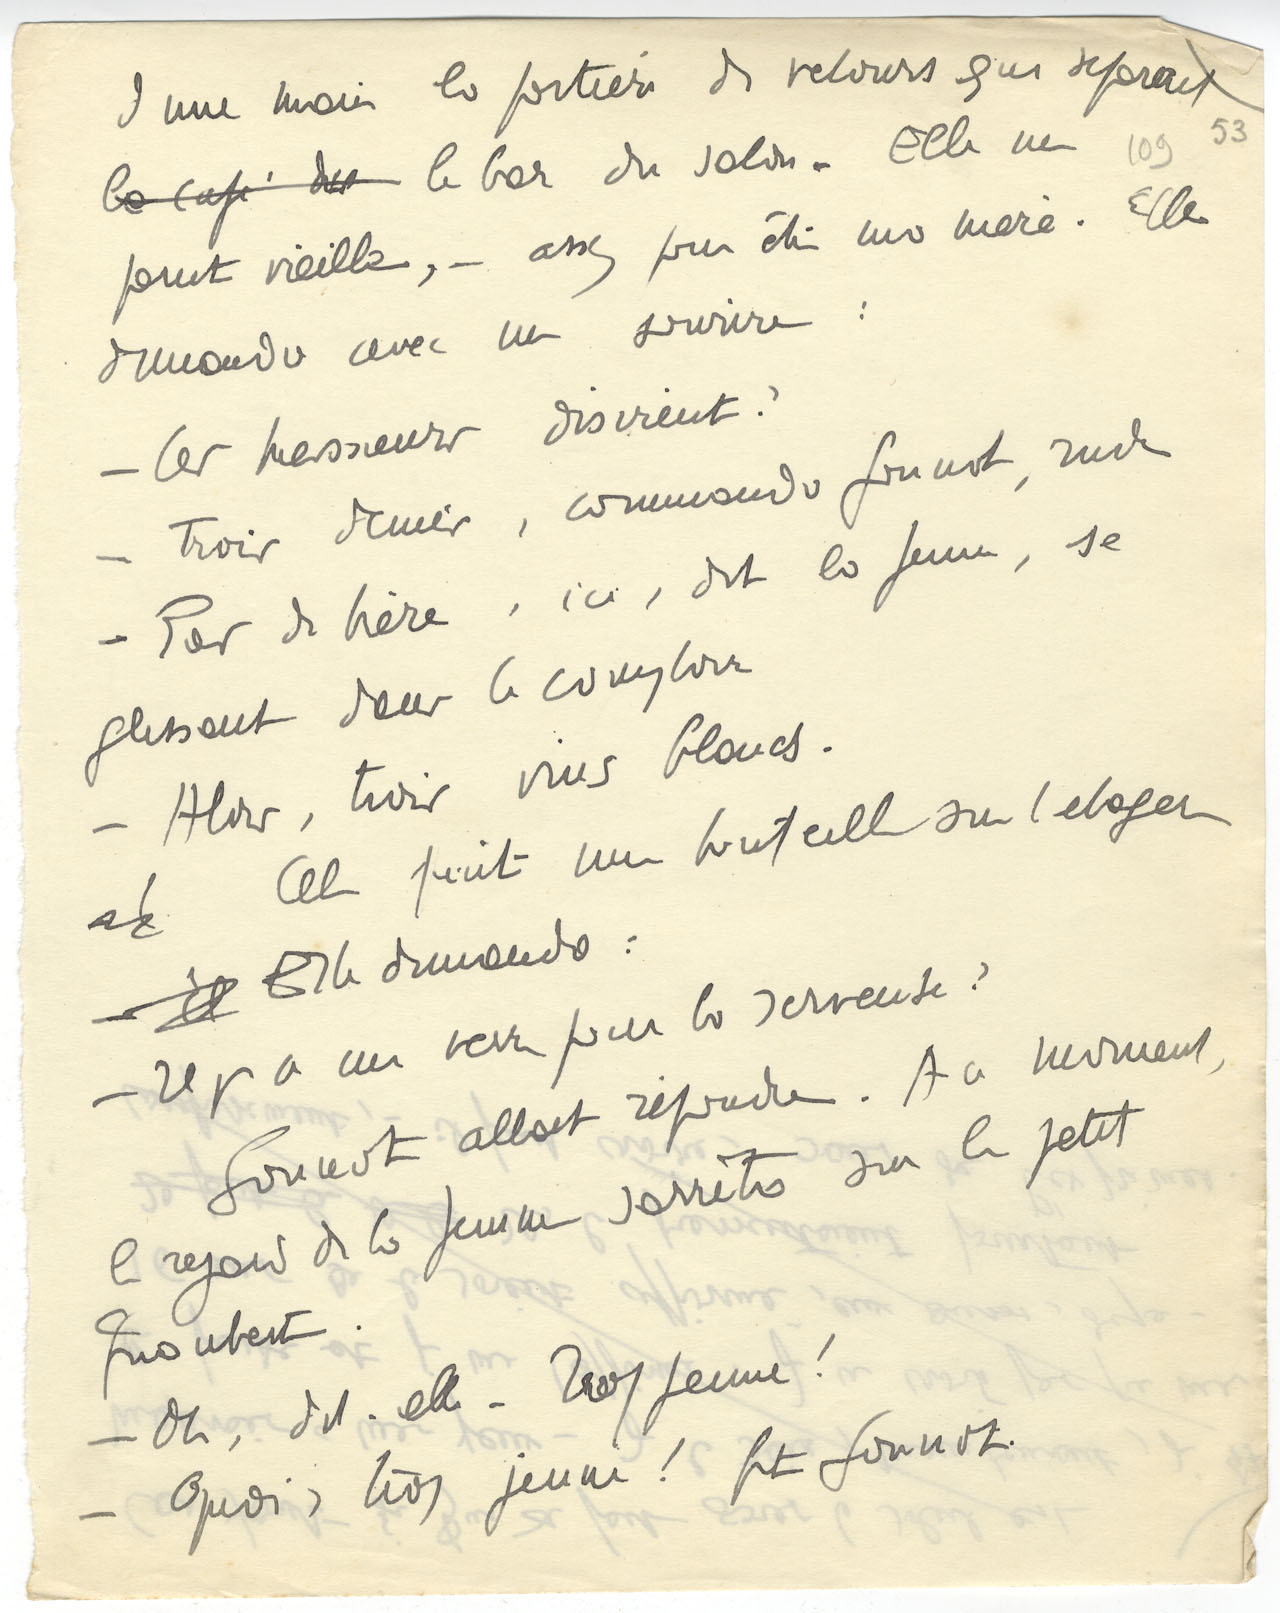 d'une main la portière de velours qui séparait
53
109
~~le café du~~ le bar du salon. Elle me
parut vieille, – assez pour être ma mère. Elle
demanda avec un sourire :
– Ces messieurs désirent ?
– Trois demis, commanda Gonnot, rude
– Pas de bière, ici, dit la femme, se
glissant dans le comptoir
– Alors, trois vins blancs.
Elle prit une bouteille sur l'étagère
~~et~~
Elle demanda :
– Il y a un verre pour la serveuse ?
Gonnot allait répondre. A ce moment,
le regard de la femme s'arrêta sur le petit
– Oh, dit-elle – Trop jeune !
– Quoi, trop jeune ! fit Gonnot.